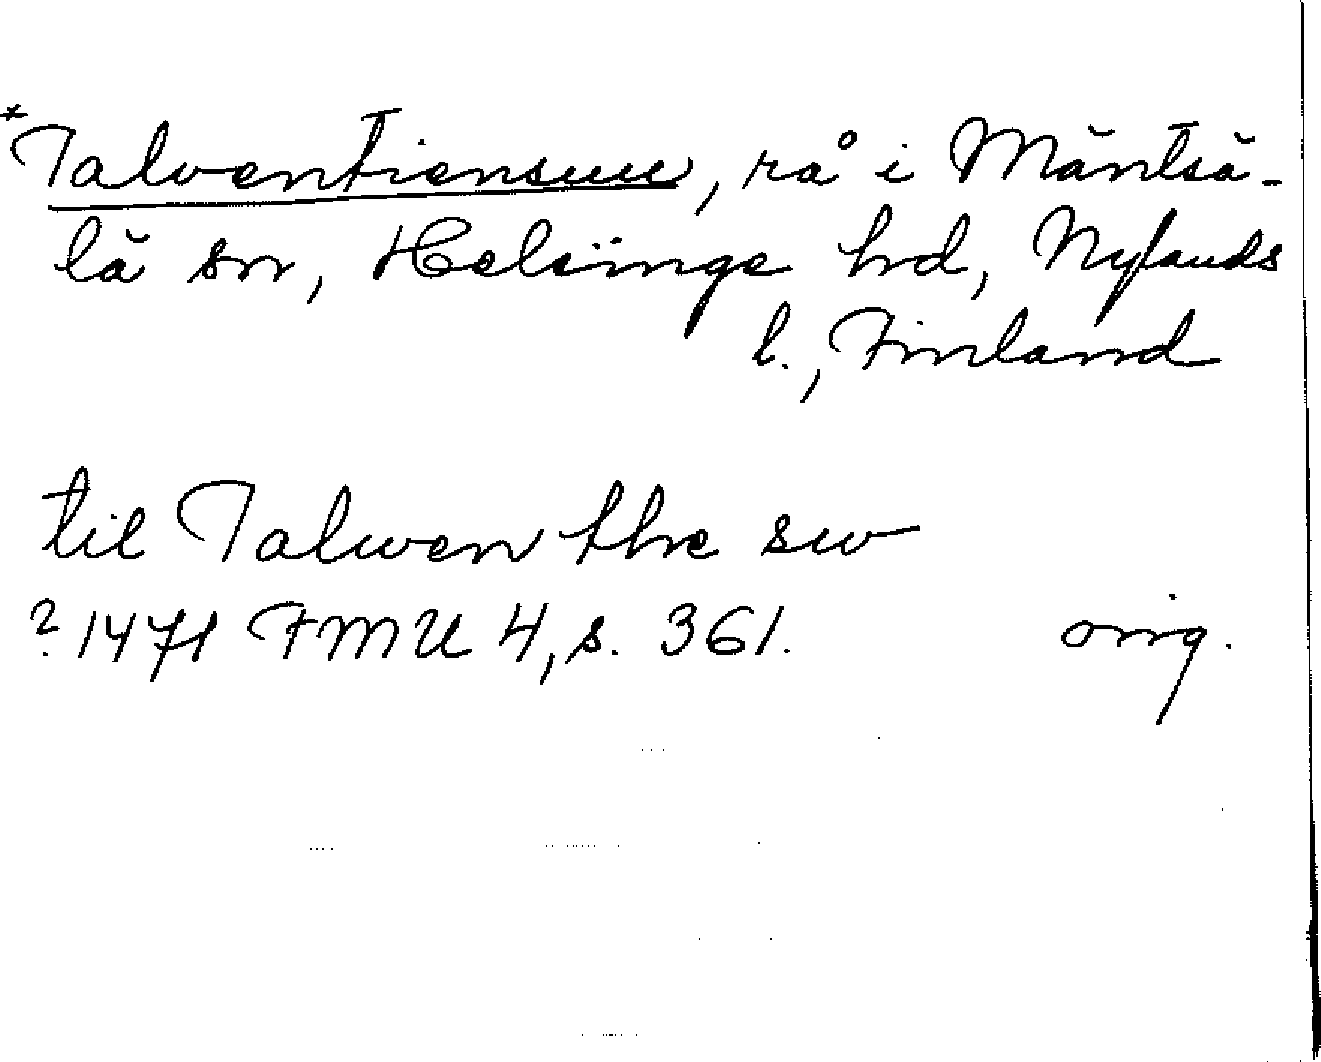 *Talventiensuu, rå i Mäntsä-
lä sn, Helsinge hd, Nylands
l., Finland
til Talwen thre sw
? 1471 FMU 4, s. 361. orig.